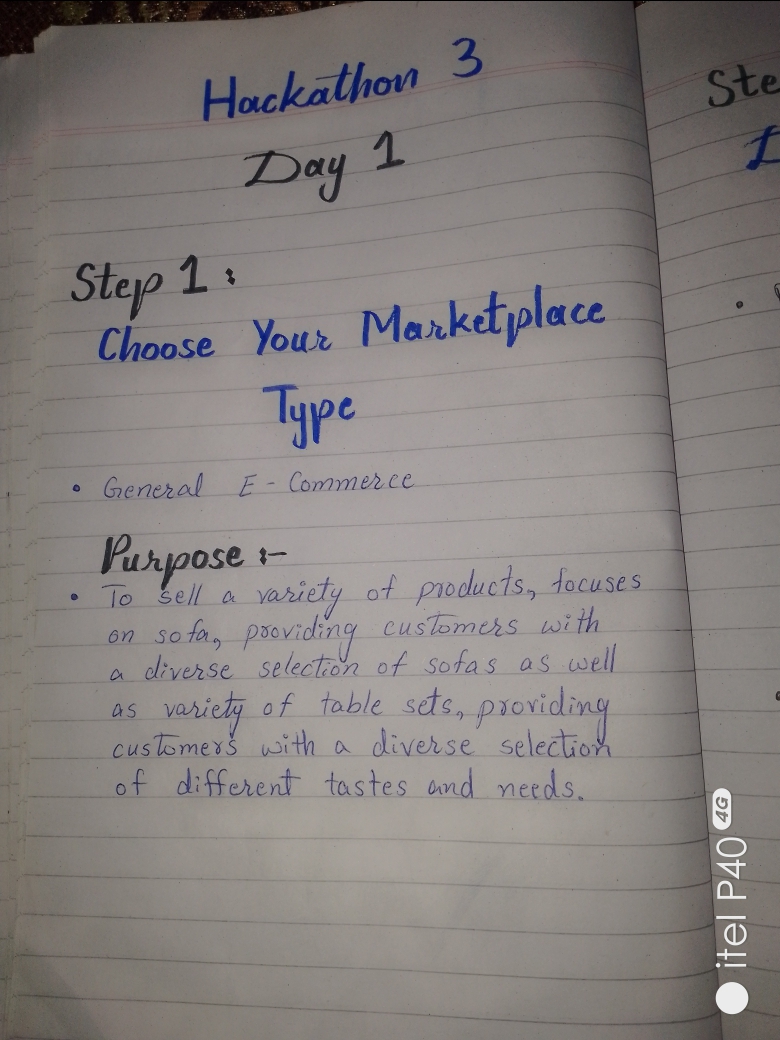 Hackathon 3
Day 1
Step 1:
Choose Your Marketplace
Type
• General E-Commerce
Purpose :-
• To sell a variety of products, focuses
on sofa, providing customers with
a diverse selection of sofas as well
as variety of table sets, providing
customers with a diverse selection
of different tastes and needs.
Ste
itel P40 4G